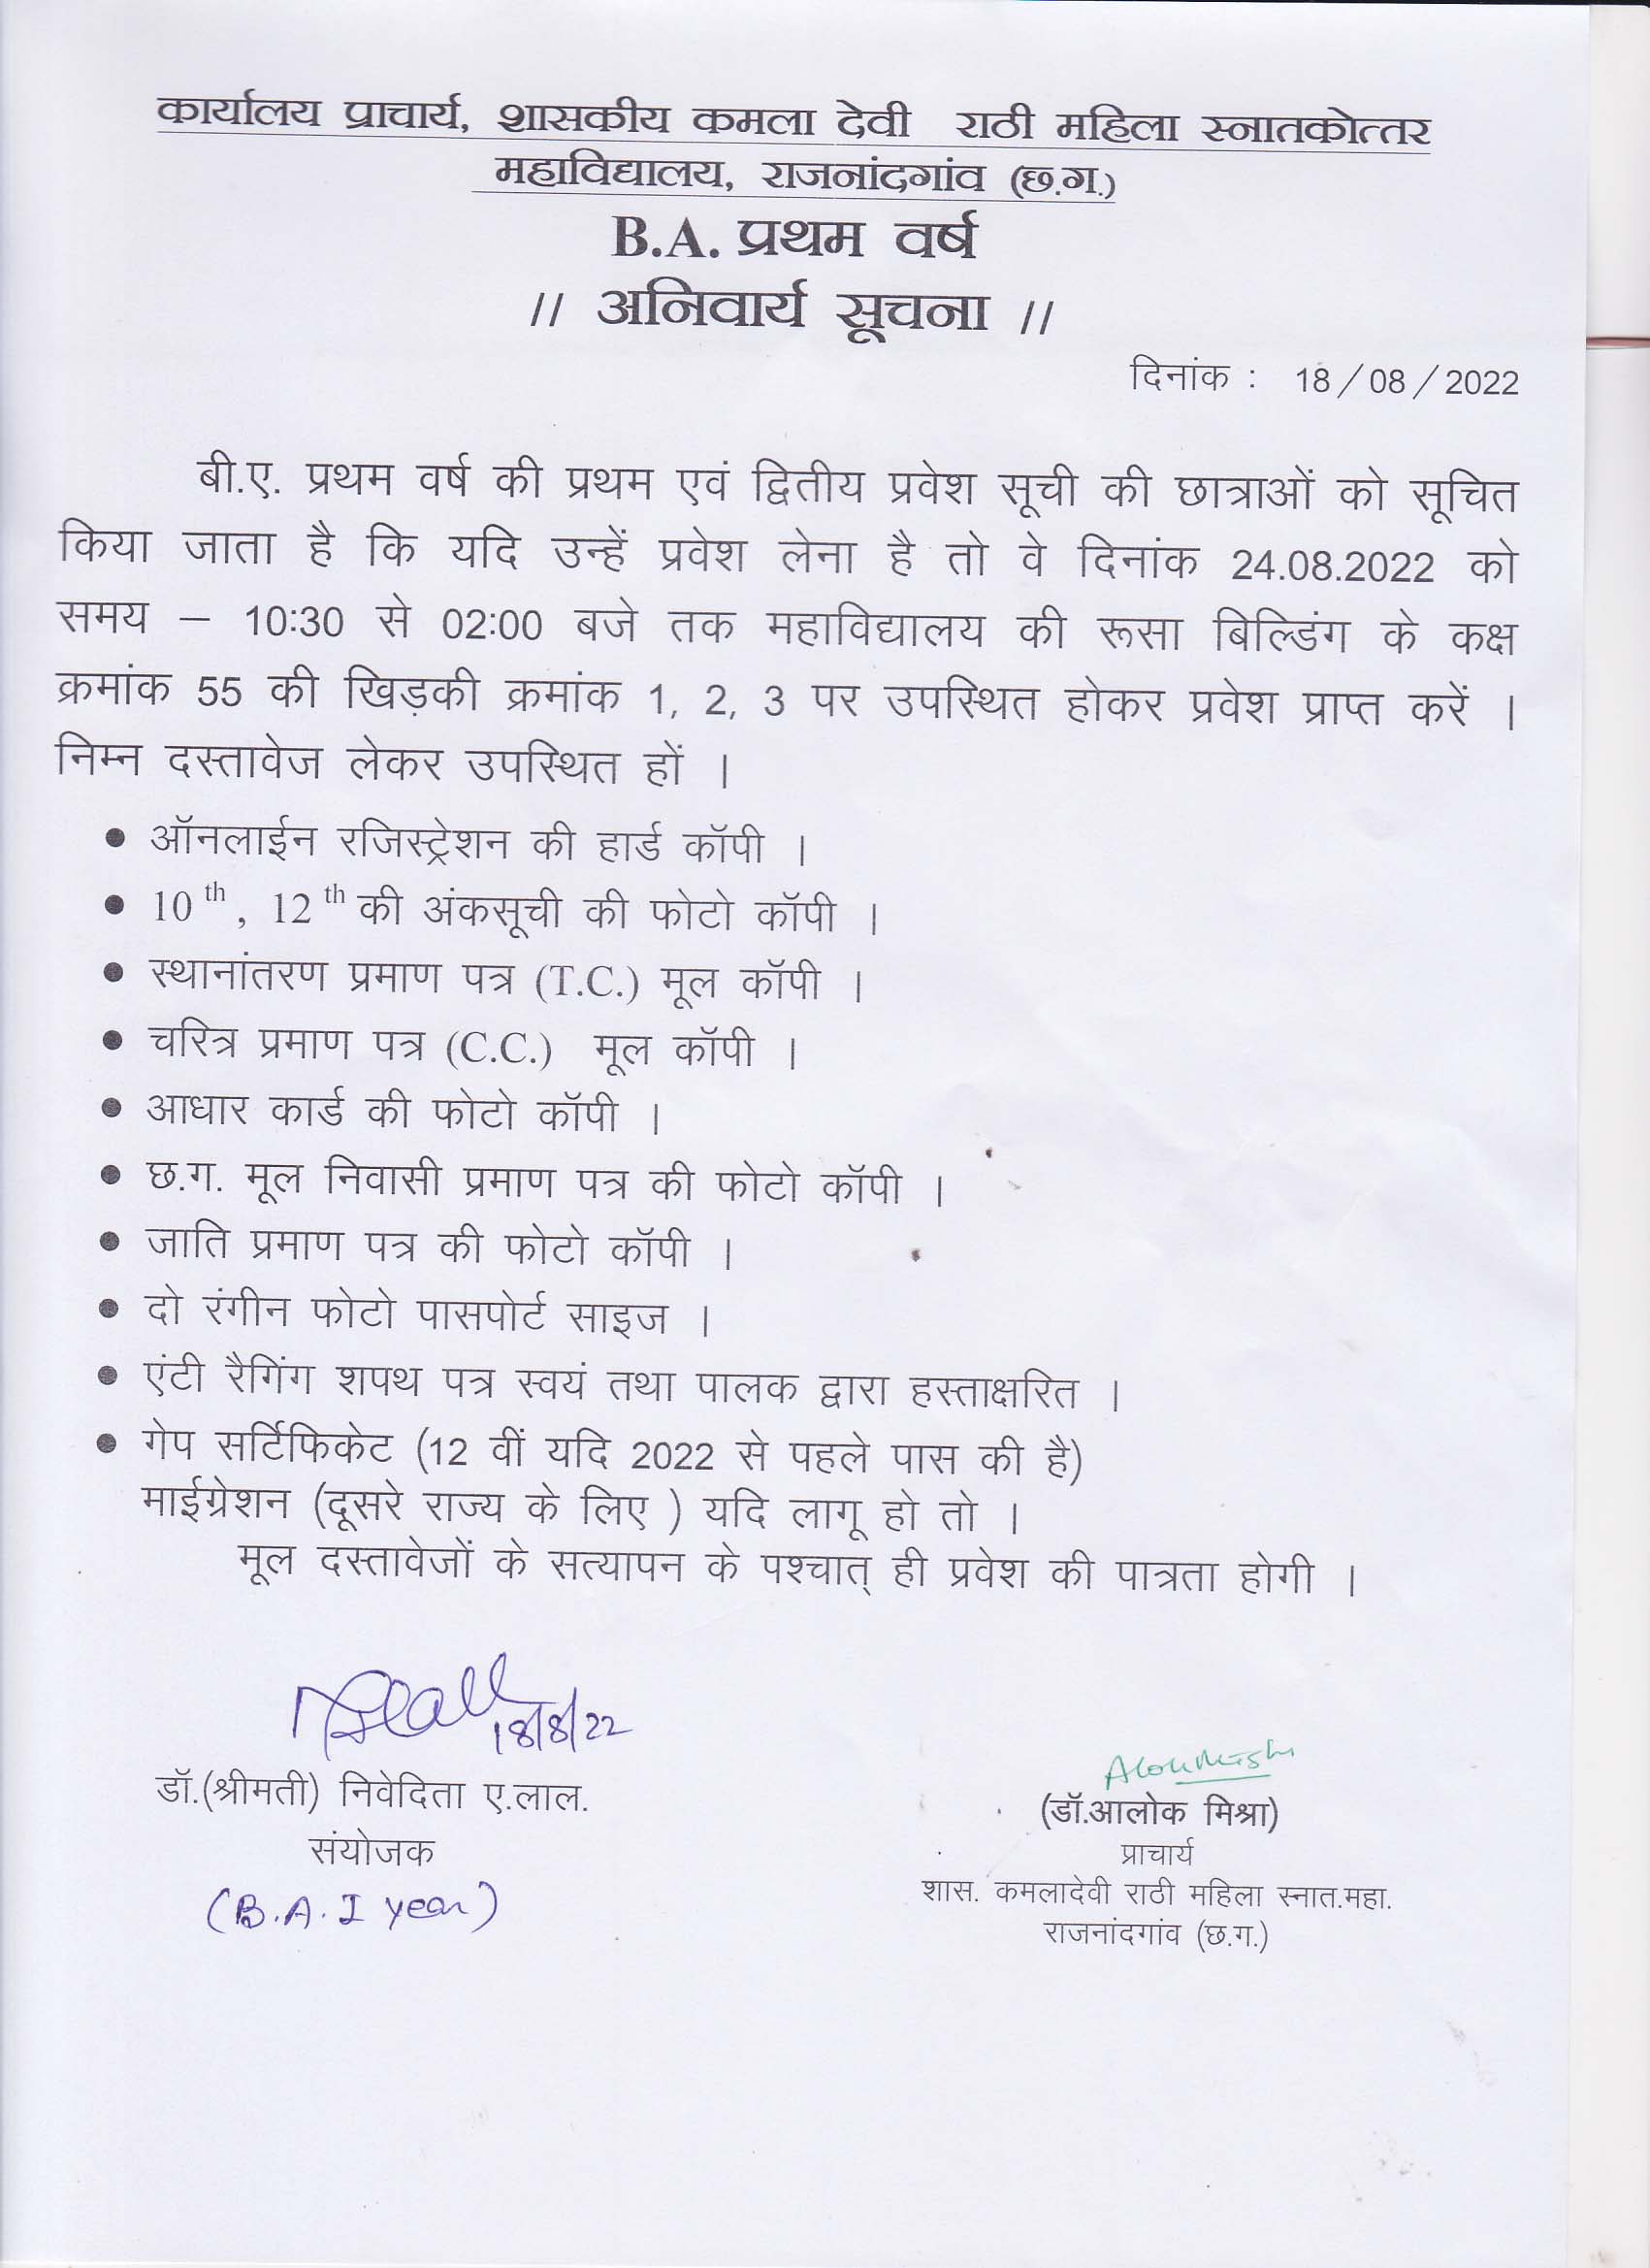 कार्यालय प्राचार्य, शासकीय कमला देवी राठी महिला स्नातकोत्तर
महाविद्यालय, राजनांदगांव (छ.ग.)
B.A. प्रथम वर्ष
// अनिवार्य सूचना //
दिनांक : 18/08/2022
बी.ए. प्रथम वर्ष की प्रथम एवं द्वितीय प्रवेश सूची की छात्राओं को सूचित
किया जाता है कि यदि उन्हें प्रवेश लेना है तो वे दिनांक 24.08.2022 को
समय – 10:30 से 02:00 बजे तक महाविद्यालय की रूसा बिल्डिंग के कक्ष
क्रमांक 55 की खिड़की क्रमांक 1, 2, 3 पर उपस्थित होकर प्रवेश प्राप्त करें ।
निम्न दस्तावेज लेकर उपस्थित हों ।
● ऑनलाईन रजिस्ट्रेशन की हार्ड कॉपी ।
● 10 th , 12 th की अंकसूची की फोटो कॉपी ।
● स्थानांतरण प्रमाण पत्र (T.C.) मूल कॉपी ।
● चरित्र प्रमाण पत्र (C.C.) मूल कॉपी ।
● आधार कार्ड की फोटो कॉपी ।
● छ.ग. मूल निवासी प्रमाण पत्र की फोटो कॉपी ।
● जाति प्रमाण पत्र की फोटो कॉपी ।
● दो रंगीन फोटो पासपोर्ट साइज ।
● एंटी रैगिंग शपथ पत्र स्वयं तथा पालक द्वारा हस्ताक्षरित ।
● गेप सर्टिफिकेट (12 वीं यदि 2022 से पहले पास की है)
माईग्रेशन (दूसरे राज्य के लिए ) यदि लागू हो तो ।
मूल दस्तावेजों के सत्यापन के पश्चात् ही प्रवेश की पात्रता होगी ।
18/8/22
डॉ.(श्रीमती) निवेदिता ए.लाल.
संयोजक
(B.A. I year)
(डॉ.आलोक मिश्रा)
प्राचार्य
शास. कमलादेवी राठी महिला स्नात.महा.
राजनांदगांव (छ.ग.)